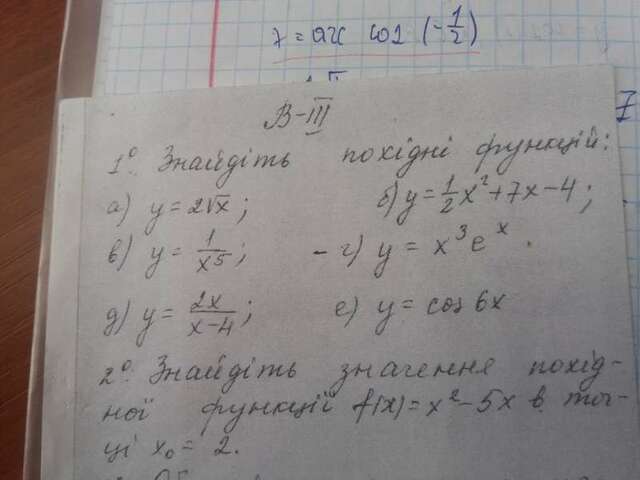 x = arc cos (-1/2)
7
В-III
1°. Знайдіть похідні функцій:
а) y = 2√x; б) y = 1/2 x² + 7x - 4;
в) y = 1/x⁵; - г) y = x³eˣ.
д) y = 2x/(x-4); е) y = cos 6x
2°. Знайдіть значення похід-
ної функції f(x) = x² - 5x в точ-
ці x₀ = 2.